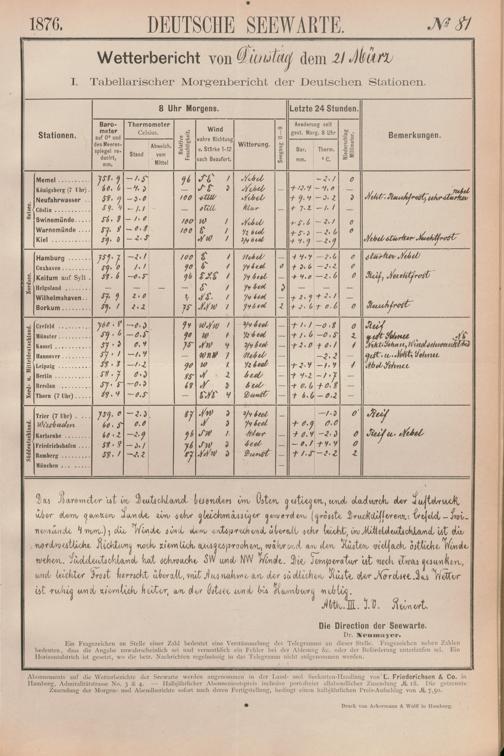 1876.
DEUTSCHE SEEWARTE.
№ 81
Wetterbericht von Dienstag dem 21 März
I. Tabellarischer Morgenbericht der Deutschen Stationen.
Stationen.
8 Uhr Morgens.
Letzte 24 Stunden.
Bemerkungen.
Barometer auf 0° und den Meeresspiegel reducirt, mm
Thermometer Celsius.
Stand
Abweich. vom Mittel
Relative Feuchtigkeit.
Wind
wahre Richtung u. Stärke 1-12 nach Beaufort.
Witterung.
Seegang 0-9
Aenderung seit gest. Morg. 8 Uhr
Bar. mm.
Therm. °C.
Niederschlag Millimeter.
Memel 758.9 -1.5 96 SE 1 Nebel -2.1 0
Königsberg (7 Uhr) 60.6 -4.3 Nebel +12.4 -4.0
Neufahrwasser 58.9 -3.0 100 still Nebel +9.4 -3.2
Cöslin still klar +7.2 -1.1
Swinemünde 56.8 -1.0 100 W 1 Nebel +5.6 -2.1 0
Warnemünde 57.8 -0.8 100 E 1 ½ bed +5.3 -2.6 0
Kiel 59.3 -2.5 NW 1 ¾ bed +4.9 -2.9 Nebel starker Nachtfrost
Ostsee.
Hamburg 759.7 -2.1 100 E 1 Nebel +4.4 -2.6 0 starker Nebel
Cuxhaven 59.0 1.1 90 0
Keitum auf Sylt 58.6 -0.5 +4.0 -2.6 0 Reif, Nachtfrost
Helgoland — — E 1 ¾ bed 3 — — 0
Wilhelmshaven 57.9 2.0
Borkum 59.1 2.2 75 ¾ bed 2 +2.6 +0.6 0 Rauchfrost
Nordsee.
Crefeld 760.8 -0.3 94 ¾ bed +1.1 -0.8 0 Reif
Münster 59.6 -0.5 90 W 1 ½ bed +1.6 -0.5 2
Kassel 57.3 0.4 75 NW 4 ¾ bed 1
Hannover 57.1 -1.4 — WNW 1 Nebel -2.2
Leipzig 58.8 -1.2 90 W 1 +2.4 -1.4 1
Berlin 58.7 0.3 85 N 2 bed +4.2 -1.7
Breslau 57.5 -0.3 68 N 3 bed +0.6 +0.8
Thorn (7 Uhr) 4 Dunst +6.6 -0.2
Nord- u. Mitteldeutschland.
Trier (7 Uhr) 759.0 -2.3 87 NW 3 ¾ bed -1.3 0 Reif
Wiesbaden 60.5 0.0 N 3 ¾ bed +0.9 0.0
Karlsruhe 60.2 -2.9 96 SW 1 klar +0.4 -2.3 0 Reif u. Nebel
Friedrichshafen 76 SW 3 bed -0.1 +4.4 0
Bamberg 58.1 -2.2 87 NNW 2 Dunst +1.5 -2.2 2
München — —
Süddeutschland.
Das Barometer ist in Deutschland besonders im Osten gestiegen, und dadurch der Luftdruck
über dem ganzen Lande ein sehr gleichmässiger geworden (grösste Druckdifferenz: Crefeld - Swi-
nemünde 4 mm); die Winde sind dem entsprechend überall sehr leicht, in Mitteldeutschland ist die
nordwestliche Richtung noch ziemlich ausgesprochen, während an den Küsten vielfach östliche Winde
wehen. Süddeutschland hat schwache SW und NW Winde. Die Temperatur ist noch etwas gesunken,
und leichter Frost herrscht überall, mit Ausnahme an der südlichen Küste der Nordsee. Das Wetter
ist ruhig und ziemlich heiter, an der Ostsee und bis Hamburg neblig.
Abth. III. I.V. Reinert.
Die Direction der Seewarte.
Dr. Neumayer.
Ein Fragezeichen an Stelle einer Zahl bedeutet eine Verstümmelung des Telegramms an dieser Stelle. Fragezeichen neben Zahlen
bedeuten, dass die Angabe unwahrscheinlich sei und vermuthlich ein Fehler bei der Ablesung &c. oder der Beförderung unterlaufen sei. Ein
Horizontalstrich ist gesetzt, wo die betr. Nachrichten regelmässig in das Telegramm nicht aufgenommen werden.
Abonnements auf die Wetterberichte der Seewarte werden angenommen in der Land- und Seekarten-Handlung von L. Friederichsen & Co. in
Hamburg, Admiralitätstrasse No. 3 & 4. — Halbjährlicher Abonnementspreis inclusive portofreier allabendlicher Zusendung ℳ 18. Die getrennte
Zusendung der Morgen- und Abendberichte sofort nach deren Fertigstellung, bedingt einen halbjährlichen Preis-Aufschlag von ℳ 7,50.
Druck von Ackermann & Wulff in Hamburg.